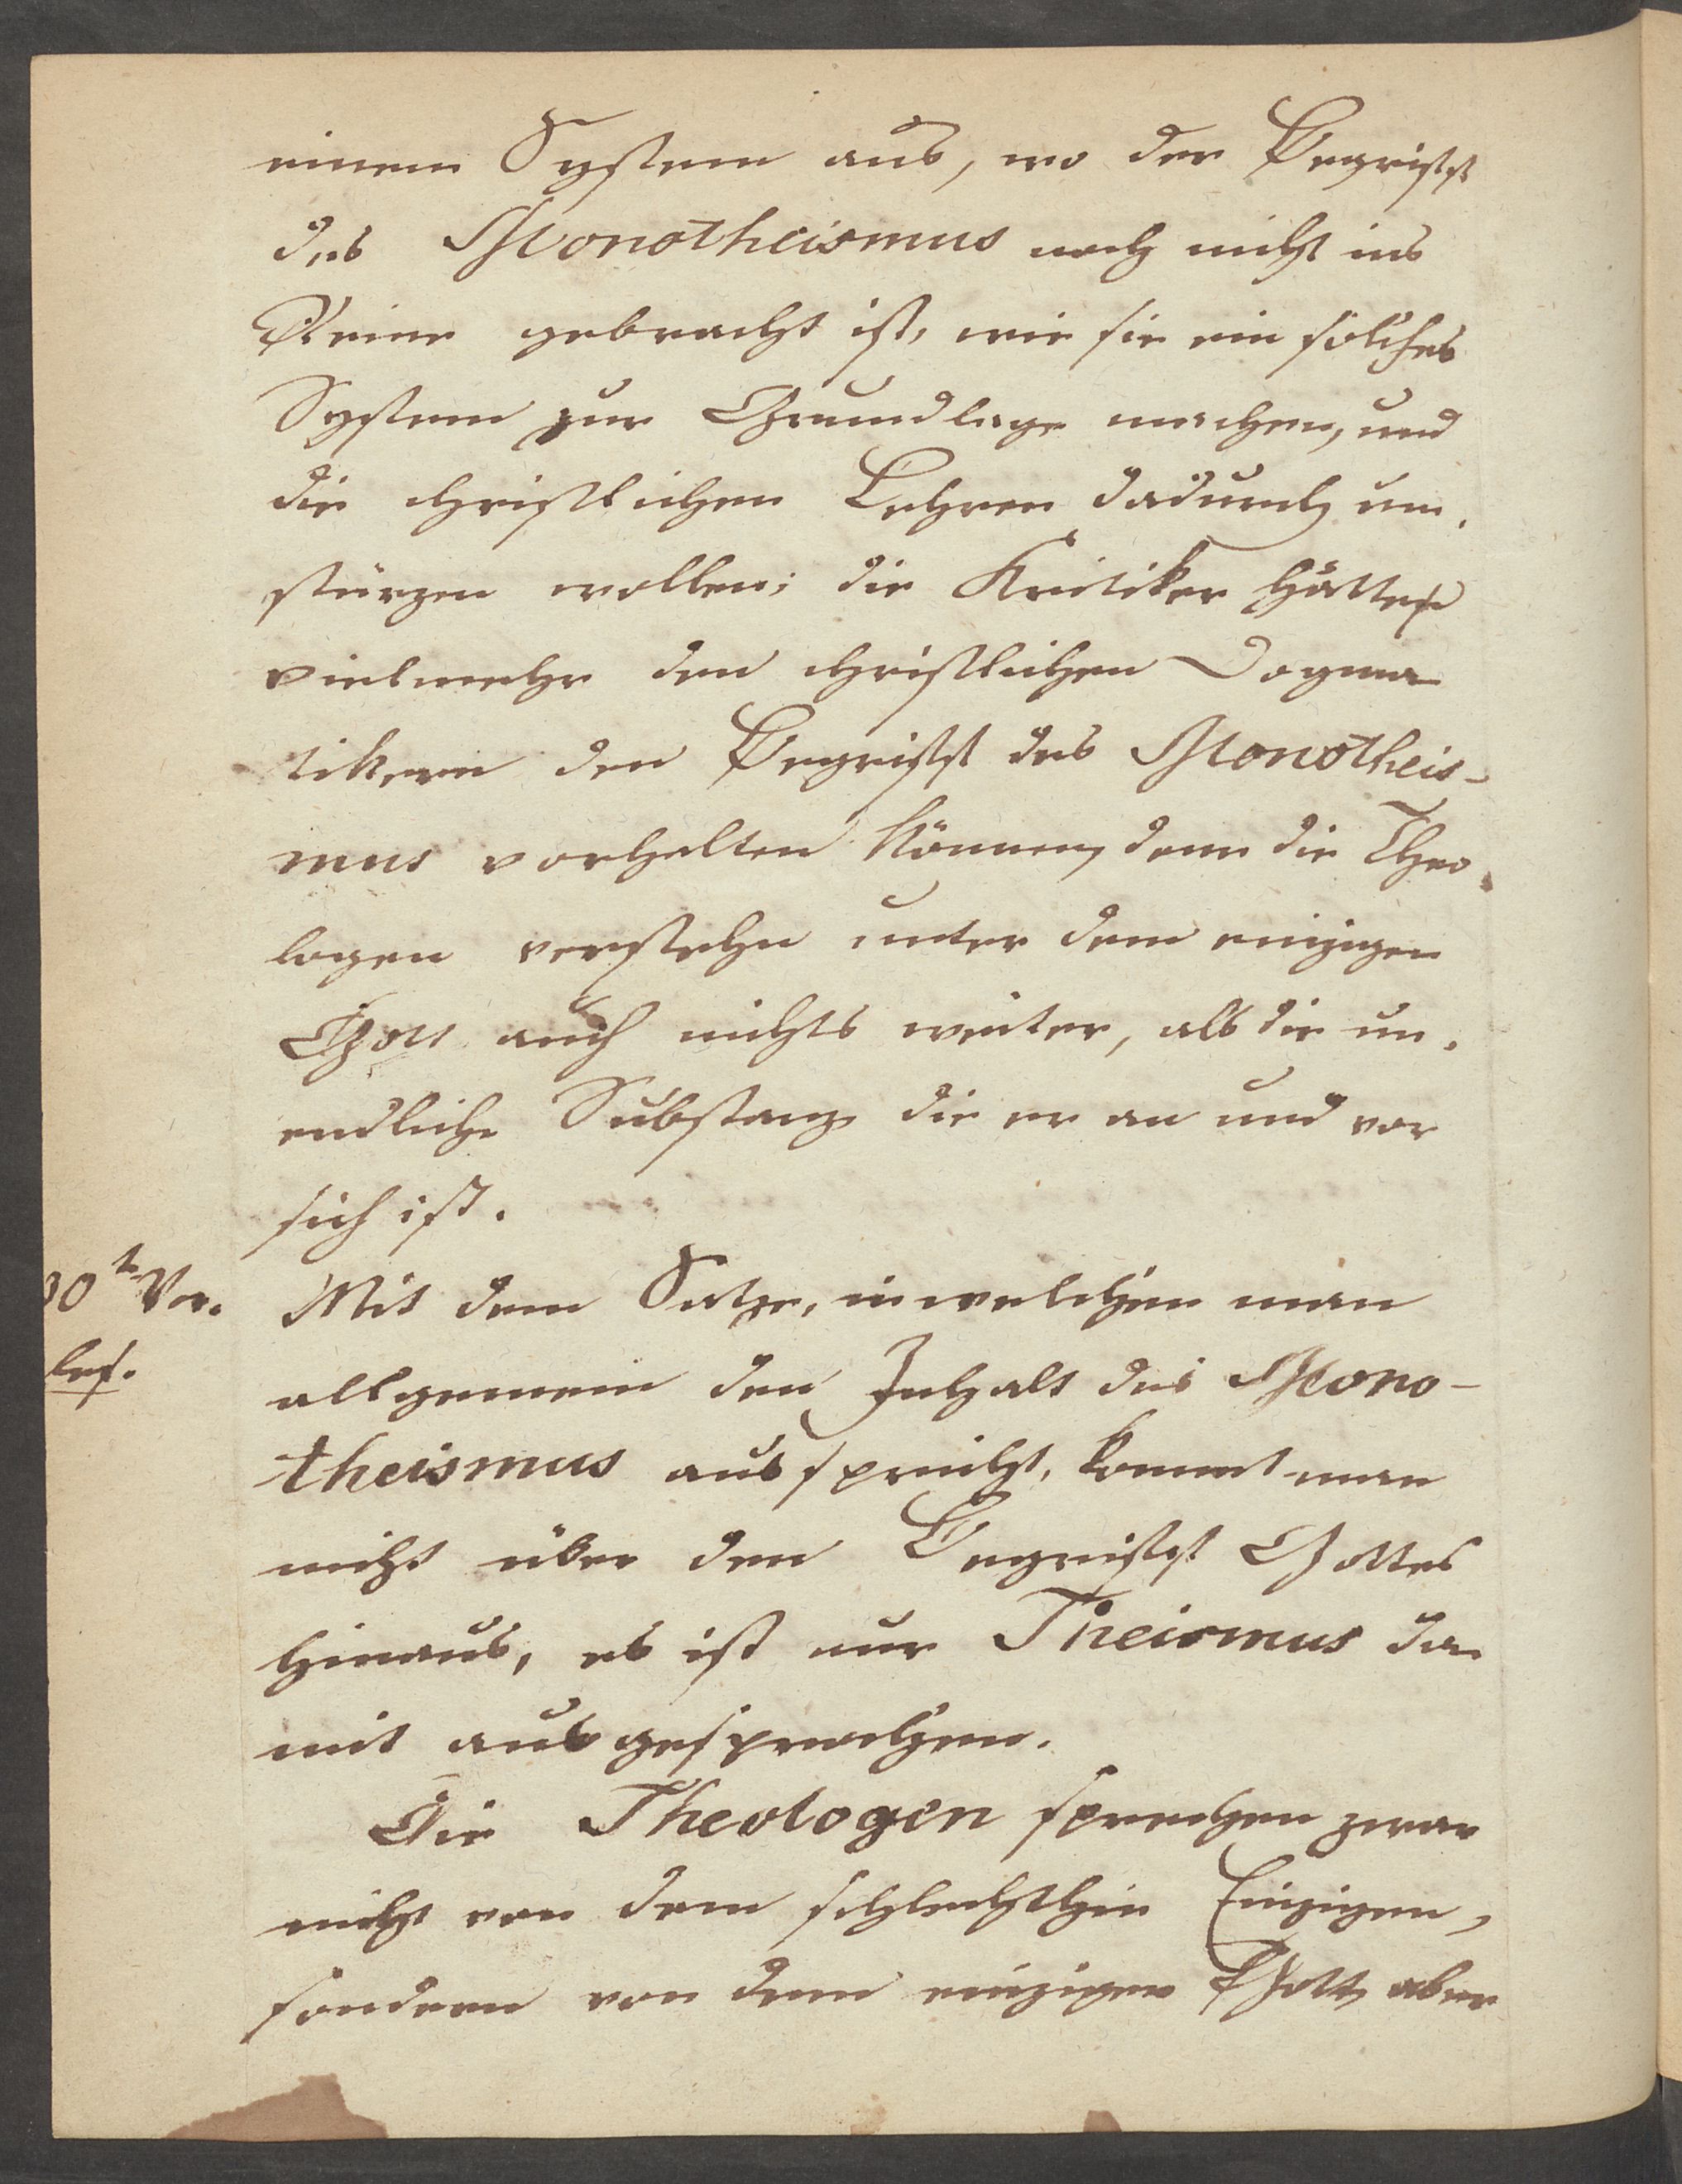 einem System aus, wo der Begriff
des Monotheismus noch nicht ins
Reine gebracht ist, wie sie ein solches
System zur Grundlage machen, und
die christlichen Lehren dadurch um-
stürzen wollen; die Kritiker hätten
vielmehr den christlichen Dogma
tikern den Begriff des Monotheis-
mus vorhalten können, denn die Theo-
logen verstehn unter dem einzigen
Gott auch nichts weiter, als die un-
endliche Substanz die er an und vor
sich ist.
30te Vor-
les.
Mit dem Satze, in welchem man
allgemein den Inhalt des Mono-
theismus ausspricht, kommt man
nicht über den Begriff Gottes
hinaus, es ist nur Theismus da-
mit ausgesprochen.
Die Theologen sprechen zwar
nicht von dem schlechthin Einzigen,
sondern von dem einzigen Gott, aber